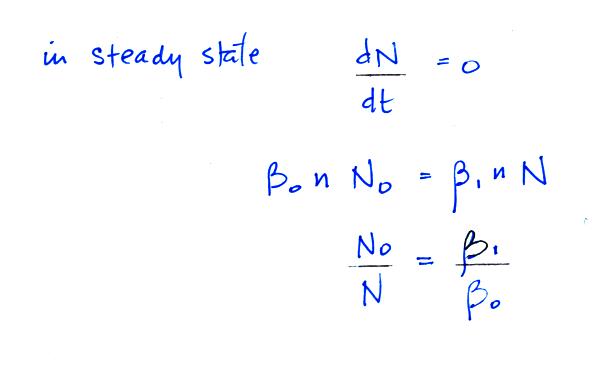 in steady state dN/dt = 0
β₀ n N₀ = β₁ n N
N₀/N = β₁/β₀